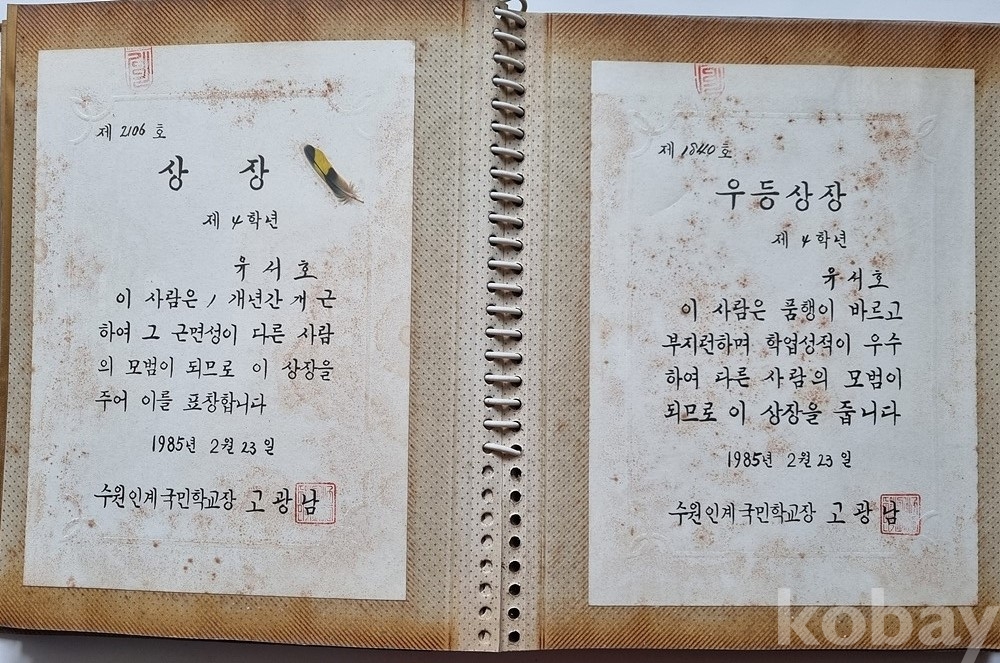 제 2106 호
상 장
제 4 학년
유 서 호
이 사람은 1 개년간 개근
하여 그 근면성이 다른 사람
의 모범이 되므로 이 상장을
주어 이를 표창합니다
1985년 2월 23일
수원인계국민학교장 고광남
제 1840 호
우등상장
제 4 학년
유 서 호
이 사람은 품행이 바르고
부지런하며 학업성적이 우수
하여 다른 사람의 모범이
되므로 이 상장을 줍니다
1985년 2월 23일
수원인계국민학교장 고광남
kobay